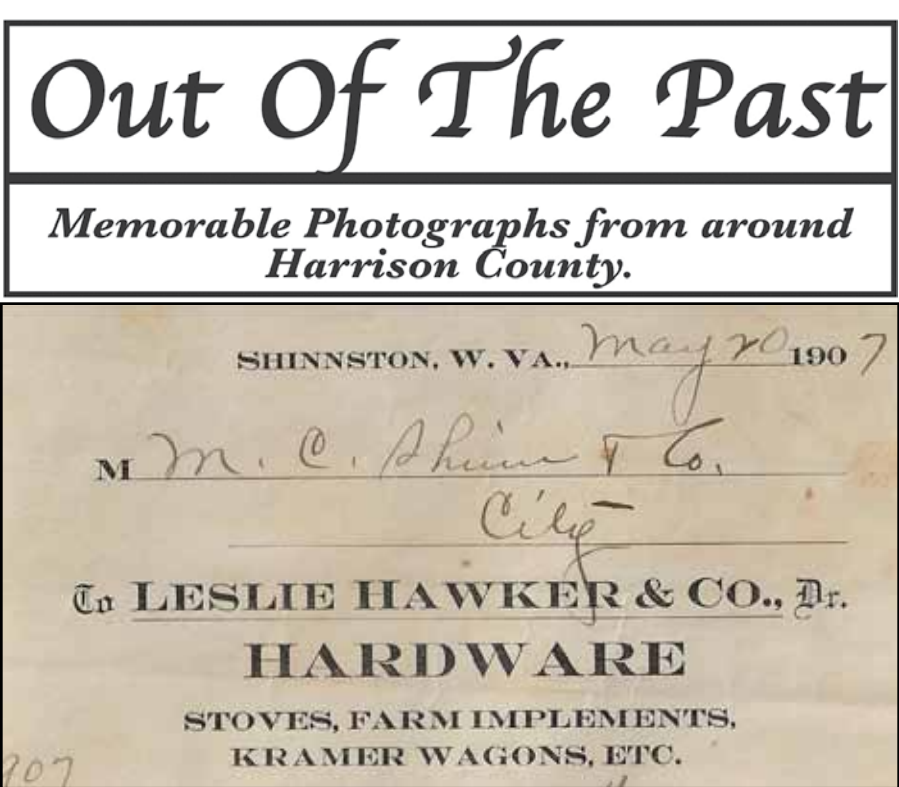 Out Of The Past
Memorable Photographs from around
Harrison County.
SHINNSTON, W. VA., May 20 1907
M M. C. Shinn & Co.
City
To LESLIE HAWKER & CO., Dr.
HARDWARE
STOVES, FARM IMPLEMENTS,
KRAMER WAGONS, ETC.
907